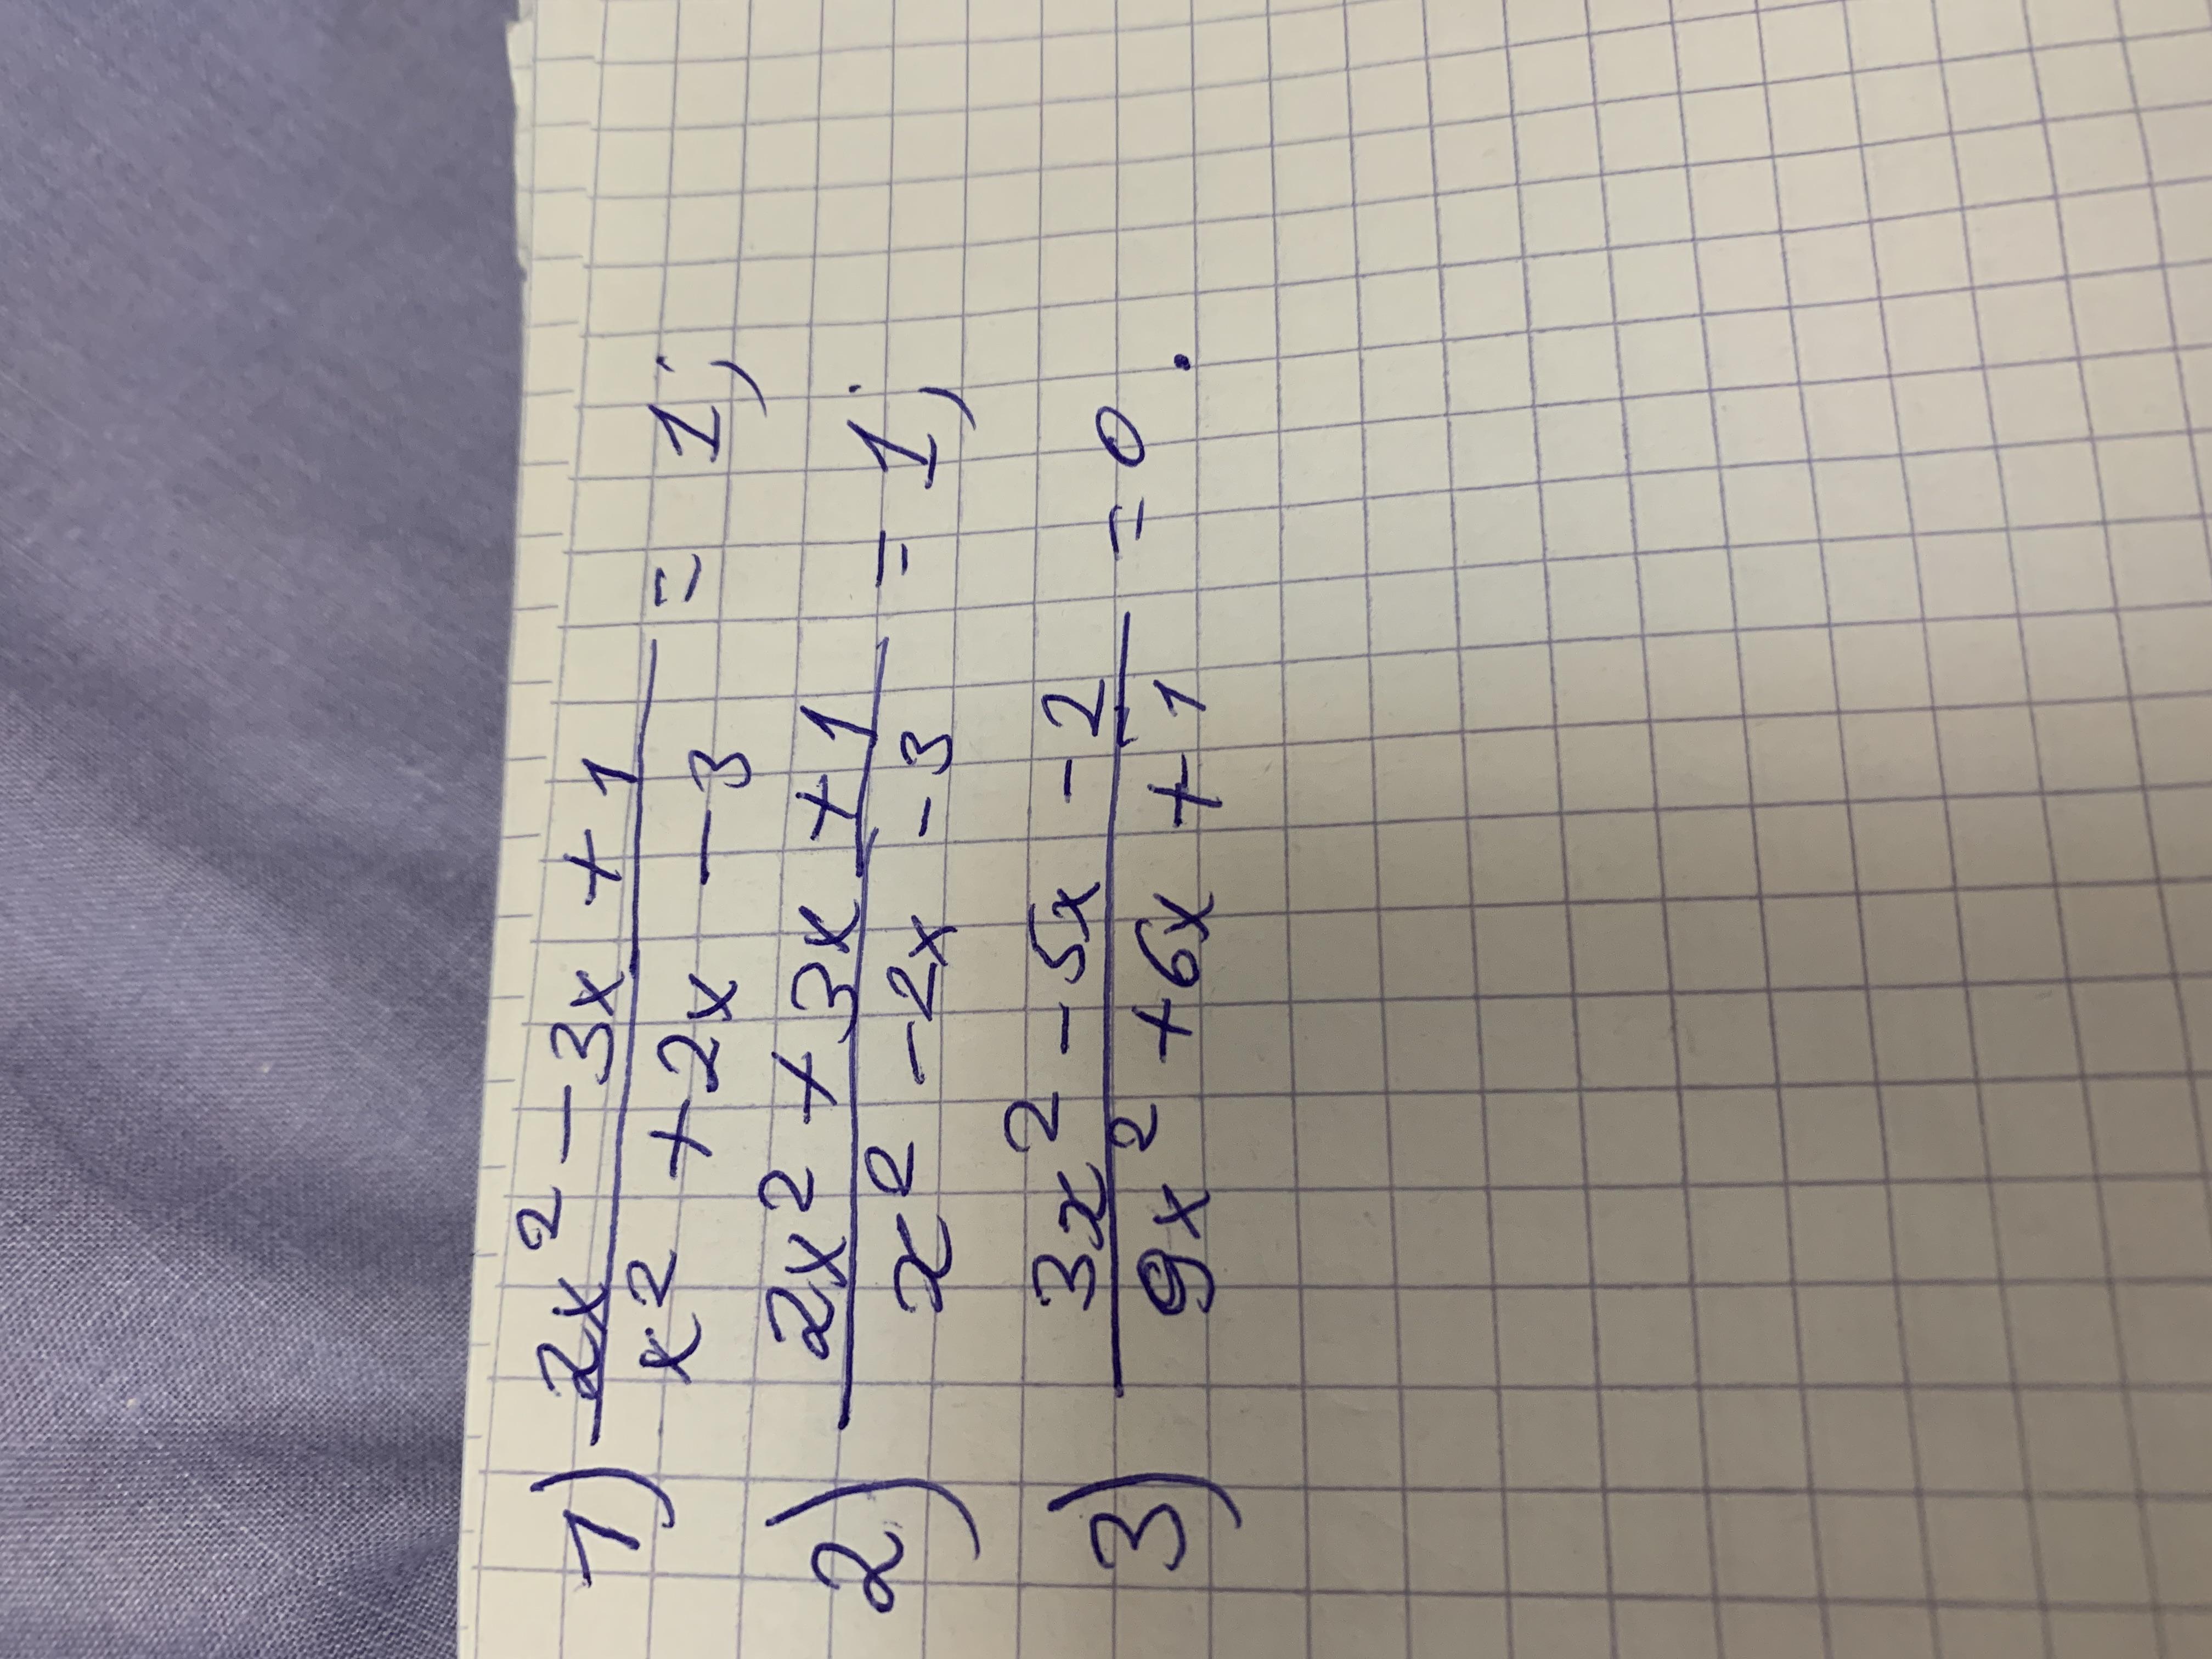 1) 2x² - 3x + 1 = 1;
x² + 2x - 3
2) 2x² + 3x + 1 = 1;
x² - 2x - 3
3) 3x² - 5x - 2 = 0.
9x² + 6x + 1